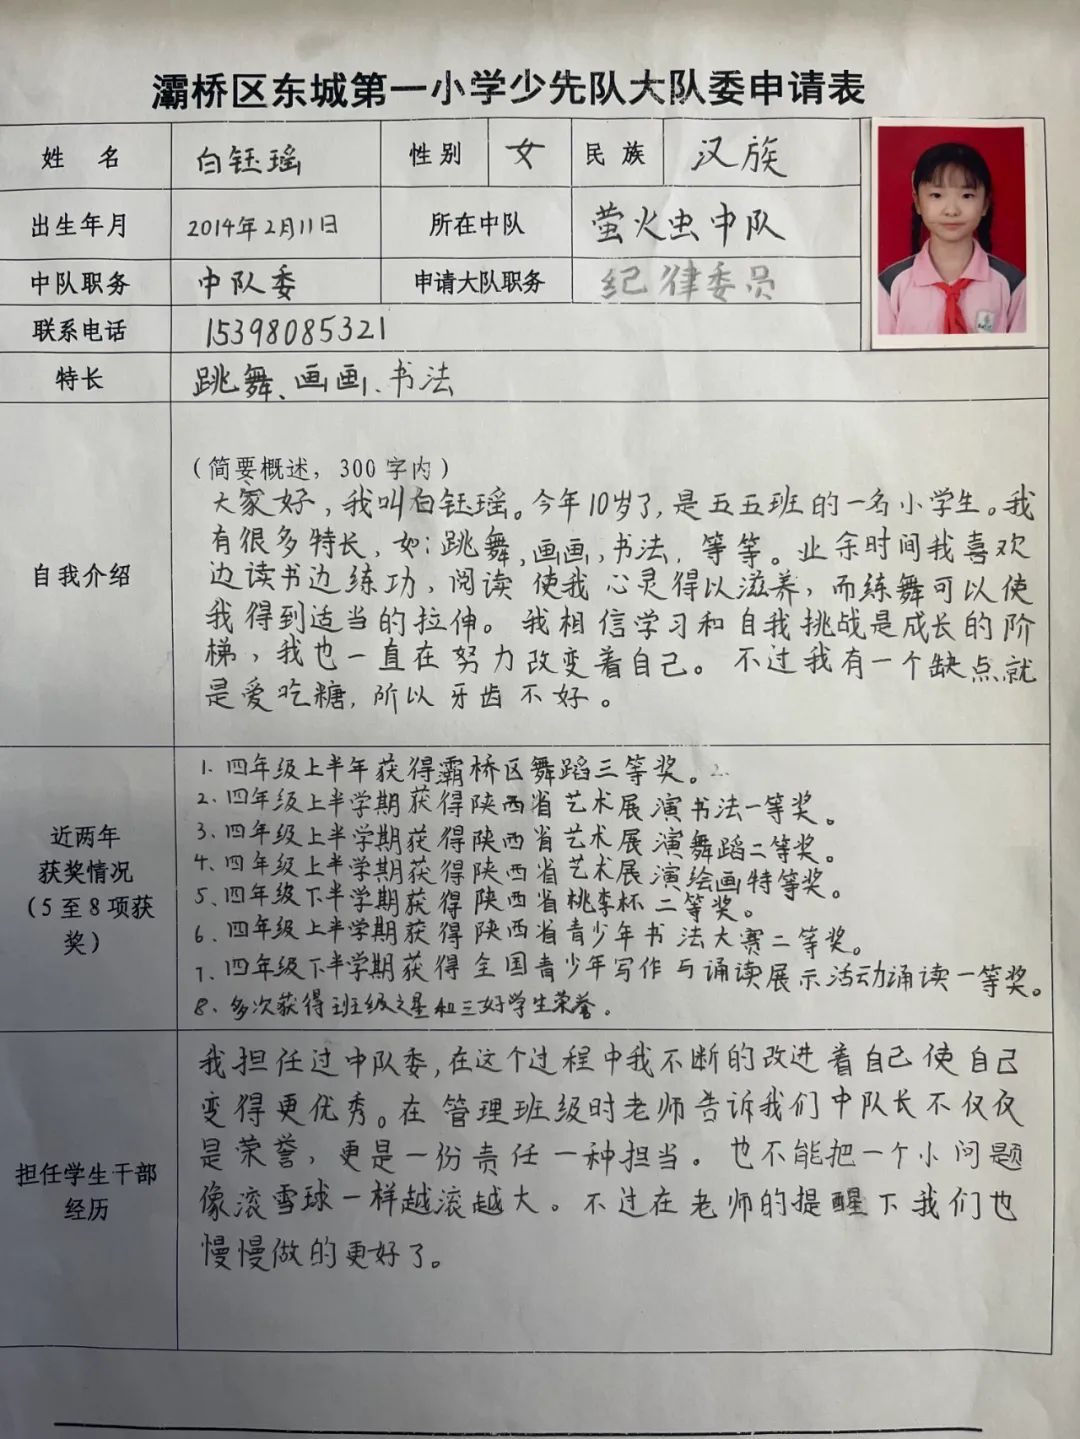 灞桥区东城第一小学少先队大队委申请表
姓 名 白钰瑶 性别 女 民族 汉族
出生年月 2014年2月11日 所在中队 萤火虫中队
中队职务 中队委 申请大队职务 纪律委员
联系电话 15398085321
特长 跳舞、画画、书法
自我介绍
(简要概述，300字内)
大家好，我叫白钰瑶。今年10岁了，是五五班的一名小学生。我
有很多特长，如：跳舞，画画，书法，等等。业余时间我喜欢
边读书边练功，阅读使我心灵得以滋养，而练舞可以使
我得到适当的拉伸。我相信学习和自我挑战是成长的阶
梯，我也一直在努力改变着自己。不过我有一个缺点就
是爱吃糖，所以牙齿不好。
近两年
获奖情况
(5至8项获
奖)
1. 四年级上半年获得灞桥区舞蹈三等奖。
2. 四年级上半学期获得陕西省艺术展演书法一等奖。
3. 四年级上半学期获得陕西省艺术展演舞蹈二等奖。
4. 四年级上半学期获得陕西省艺术展演绘画特等奖。
5. 四年级下半学期获得陕西省桃李杯二等奖。
6. 四年级上半学期获得陕西省青少年书法大赛二等奖。
7. 四年级下半学期获得全国青少年写作与诵读展示活动诵读一等奖。
8. 多次获得班级之星和三好学生荣誉。
担任学生干部
经历
我担任过中队委，在这个过程中我不断的改进着自己使自己
变得更优秀。在管理班级时老师告诉我们中队长不仅仅
是荣誉，更是一份责任一种担当。也不能把一个小问题
像滚雪球一样越滚越大。不过在老师的提醒下我们也
慢慢做的更好了。